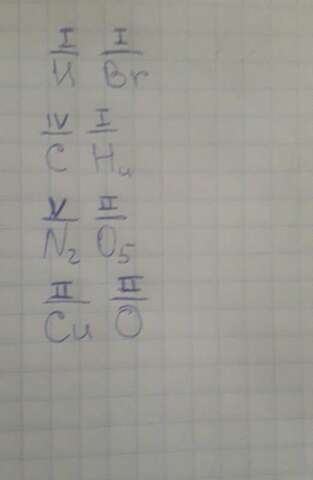 I I
H Br
IV I
C H₄
V II
N₂ O₅
II II
Cu O